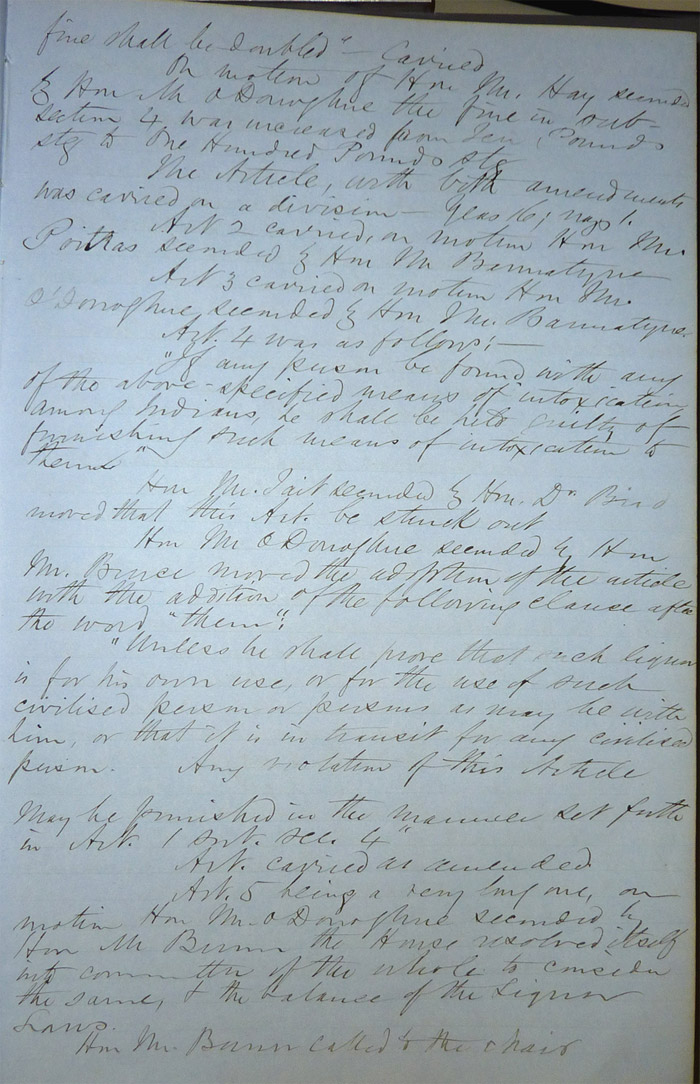 fine shall be doubled" - Carried
On motion of Hon Mr. Hay seconded
by Hon Mr O'Donoghue the fine in sub-
section 4 was increased from Ten Pounds
stg to One Hundred Pounds stg
The Article, with both amendments
was carried on a division - yeas 16; nays 1.
Art 2 carried, on motion Hon Mr.
Poitras seconded by Hon Mr Bannatyne
Art 3 carried on motion Hon Mr.
O'Donoghue, seconded by Hon Mr. Bannatyne.
Art. 4 was as follows: -
"If any person be found with any
of the above-specified means of intoxication
among Indians, he shall be held guilty of
furnishing such means of intoxication to
them"
Hon Mr. Tait seconded by Hon. Dr Bird
moved that this Art. be struck out
Hon Mr O'Donoghue seconded by Hon
Mr. Bruce moved the adoption of the article
with the addition of the following clause after
the word "them":
"Unless he shall prove that such liquor
is for his own use, or for the use of such
civilised person or persons as may be with
him, or that it is in transit for any civilised
person. Any violation of this Article
may be punished in the manner set forth
in Art. 1 sec. 4"
Art. carried as amended
Art. 5 being a very long one, on
motion Hon Mr. O'Donoghue seconded by
Hon Mr Bunn the House resolved itself
into committee of the whole to consider
the same, & the balance of the Liquor
Laws.
Hon Mr. Bunn called to the chair